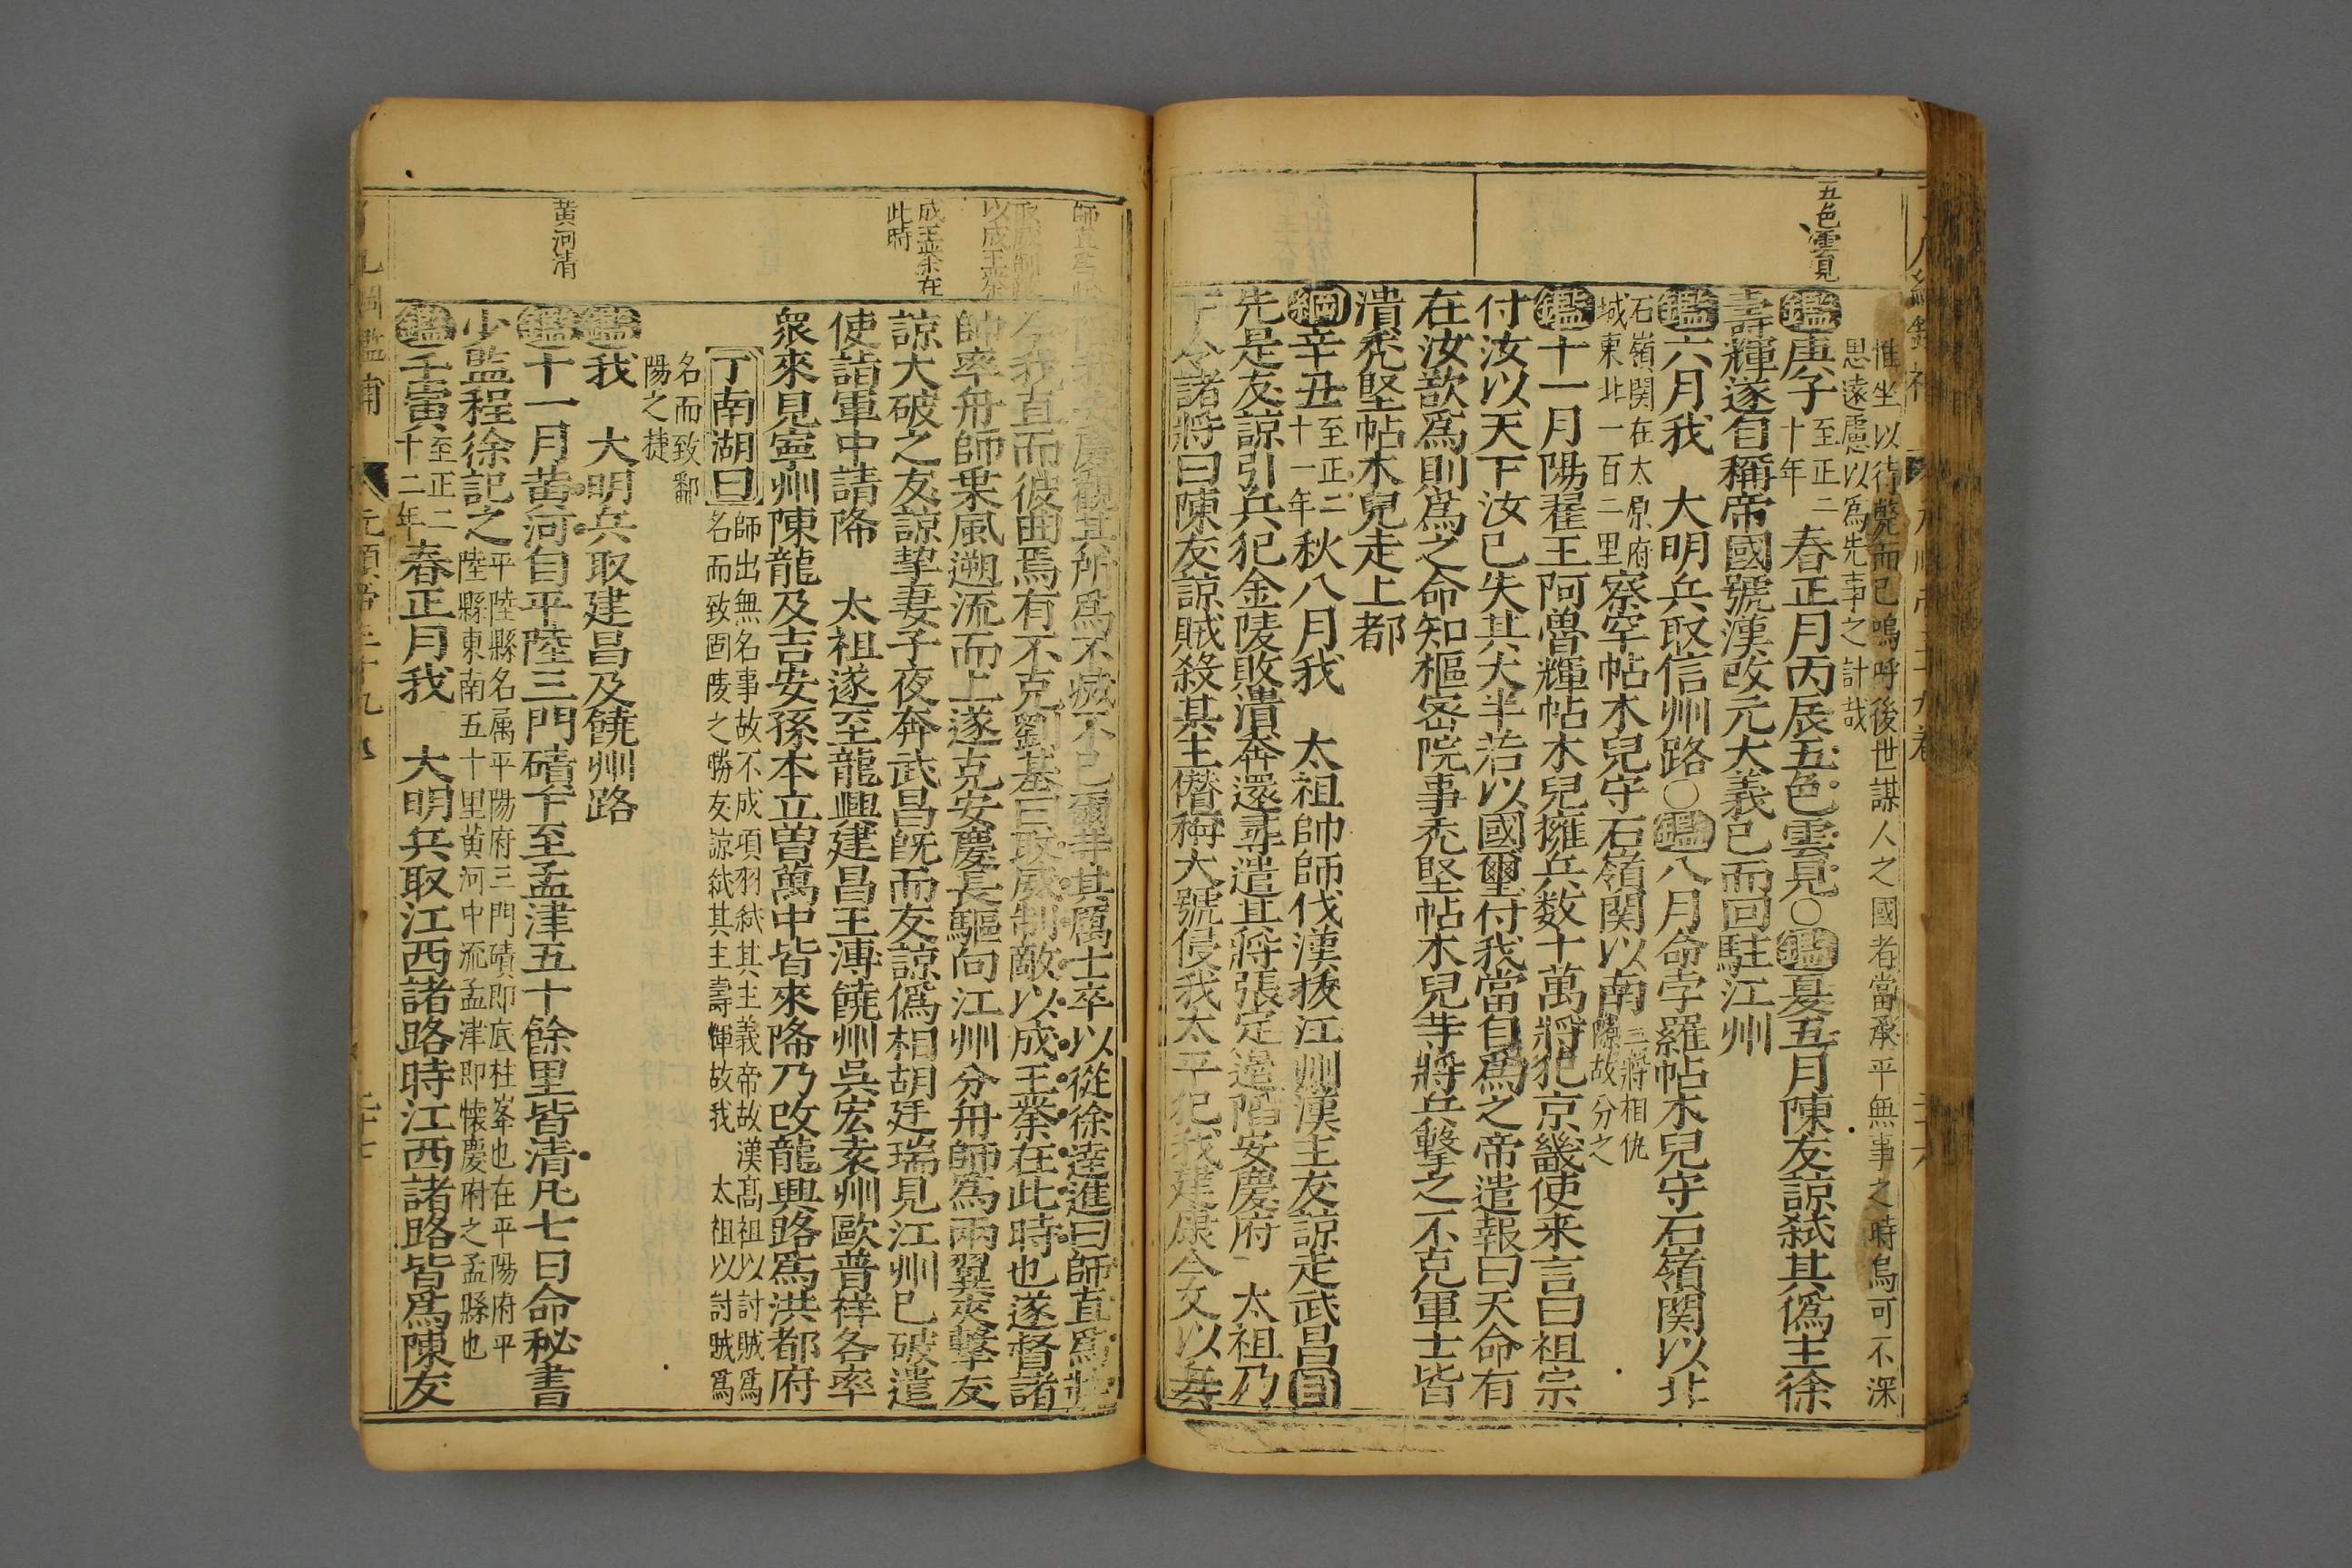 五色雲見
惟坐以待斃而已嗚呼後世謀人之國者當承平無事之時烏可不深
思遠慮以為先事之計哉
鑑庚子至正二十年春正月丙辰五色雲見○鑑夏五月陳友諒弒其僞主徐
壽輝遂自稱帝國號漢改元大義已而回駐江州
鑑六月我 大明兵取信州路○鑑八月命孛羅帖木兒守石嶺関以北
石嶺関在太原府城東北一百二里察罕帖木兒守石嶺関以南二將相仇隙故分之
鑑十一月陽翟王阿魯輝帖木兒擁兵数十萬將犯京畿使来言曰祖宗
付汝以天下汝已失其大半若以國璽付我當自爲之帝遣報曰天命有
在汝欲爲則爲之命知樞宻院事禿堅帖木兒䓁將兵擊之不克軍士皆
潰禿堅帖木兒走上都
綱辛丑至正二十一年秋八月我 太祖帥師伐漢拔江州漢主友諒走武昌目
先是友諒引兵犯金陵敗潰奔還尋遣其將張定邊陷安慶府 太祖乃
下令諸將曰陳友諒賊殺其主僭稱大號侵我太平犯我建康今又以兵
師直爲壯
取威制敵以成王業
成王業在此時
黄河清
安慶觀其所爲不滅不已爾䓁其厲士卒以從徐逹進曰師直爲壯
今我直而彼曲焉有不克劉基曰取威制敵以成王業在此時也遂督諸
帥率舟師乗風遡流而上遂克安慶長驅向江州分舟師爲兩翼夾擊友
諒大破之友諒挈妻子夜奔武昌旣而友諒僞相胡廷瑞見江州已破遣
使詣軍中請降 太祖遂至龍興建昌王溥饒州吳宏袁州歐普祥各率
衆來見寧州陳龍及吉安孫本立曽萬中皆來降乃改龍興路爲洪都府
丁南湖曰師出無名事故不成項羽弒其主義帝故漢髙祖以討賊爲
名而致固陵之勝友諒弒其主壽輝故我 太祖以討賊爲
名而致鄱
陽之捷
鑑我 大明兵取建昌及饒州路
鑑十一月黄河自平陸三門磧下至孟津五十餘里皆清凡七日命秘書
少監程徐記之平陸縣名属平陽府三門磧即底柱峯也在平陽府平陸縣東南五十里黄河中流孟津即懐慶府之孟縣也
鑑壬寅至正二十二年春正月我 大明兵取江西諸路時江西諸路皆爲陳友